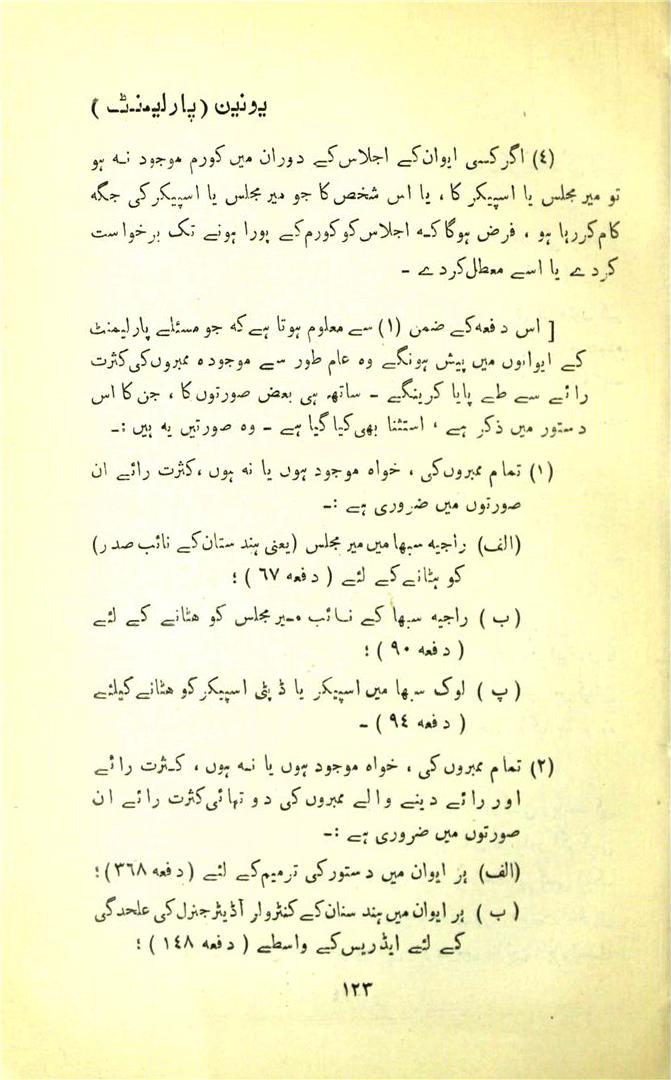 یونین (پارلیمنٹ)
(٤) اگر کسی ایوان کے اجلاس کے دوران میں کورم موجود نہ ہو
تو میر مجلس یا اسپیکر کا ، یا اس شخص کا جو میر مجلس یا اسپیکر کی جگہ
کام کررہا ہو ، فرض ہوگا کہ اجلاس کو کورم کے پورا ہونے تک برخواست
کردے یا اسے معطل کردے ۔
[ اس دفعہ کے ضمن (۱) سے معلوم ہوتا ہے کہ جو مسئلے پارلیمنٹ
کے ایوانوں میں پیش ہونگے وہ عام طور سے موجودہ ممبروں کی کثرت
رائے سے طے پایا کرینگے ۔ ساتھ ہی بعض صورتوں کا ، جن کا اس
دستور میں ذکر ہے ، استثنا بھی کیا گیا ہے ۔ وہ صورتیں یہ ہیں :۔
(۱) تمام ممبروں کی ، خواہ موجود ہوں یا نہ ہوں ، کثرت رائے ان
صورتوں میں ضروری ہے :۔
(الف) راجیہ سبھا میں میر مجلس (یعنی ہندستان کے نائب صدر)
کو ہٹانے کے لئے ( دفعہ ٦٧ ) ؛
( ب ) راجیہ سبھا کے نائب میر مجلس کو ھٹانے کے لئے
( دفعہ ٩٠ ) ؛
( پ ) لوک سبھا میں اسپیکر یا ڈپٹی اسپیکر کو ھٹانے کیلئے
( دفعہ ٩٤ ) ۔
(٢) تمام ممبروں کی ، خواہ موجود ہوں یا نہ ہوں ، کثرت رائے
اور رائے دینے والے ممبروں کی دو تہائی کثرت رائے ان
صورتوں میں ضروری ہے :۔
(الف) ہر ایوان میں دستور کی ترمیم کے لئے (دفعہ ٣٦٨) ؛
( ب ) ہر ایوان میں ہندستان کے کنٹرولر آڈیٹر جنرل کی علحدگی
کے لئے ایڈریس کے واسطے ( دفعہ ١٤٨ ) ؛
١٢٣